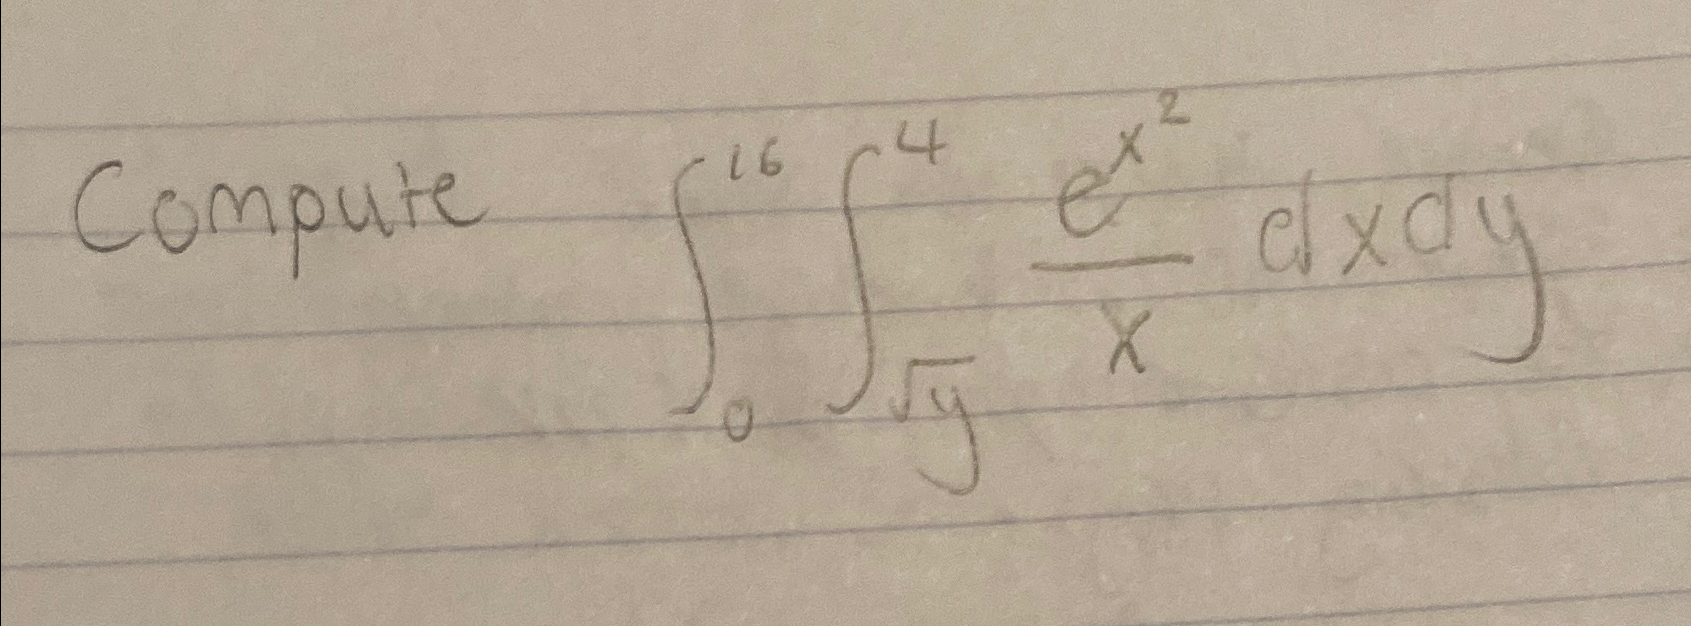 Compute ∫₀¹⁶ ∫_{√y}^4 e^{x²}/x dxdy